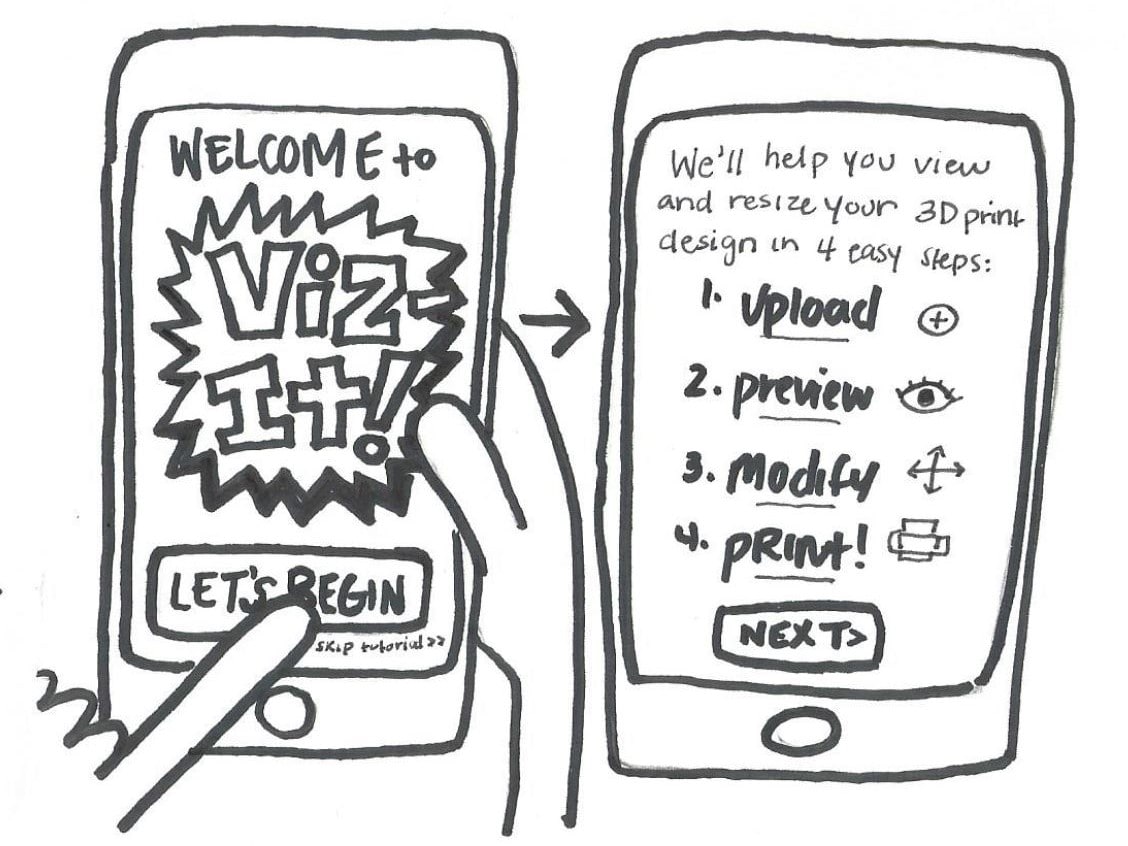 WELCOME to
Viz-
It!
LET'S BEGIN
skip tutorial >>
We'll help you view
and resize your 3D print
design in 4 easy steps:
1. Upload
2. preview
3. Modify
4. pRint!
NEXT>